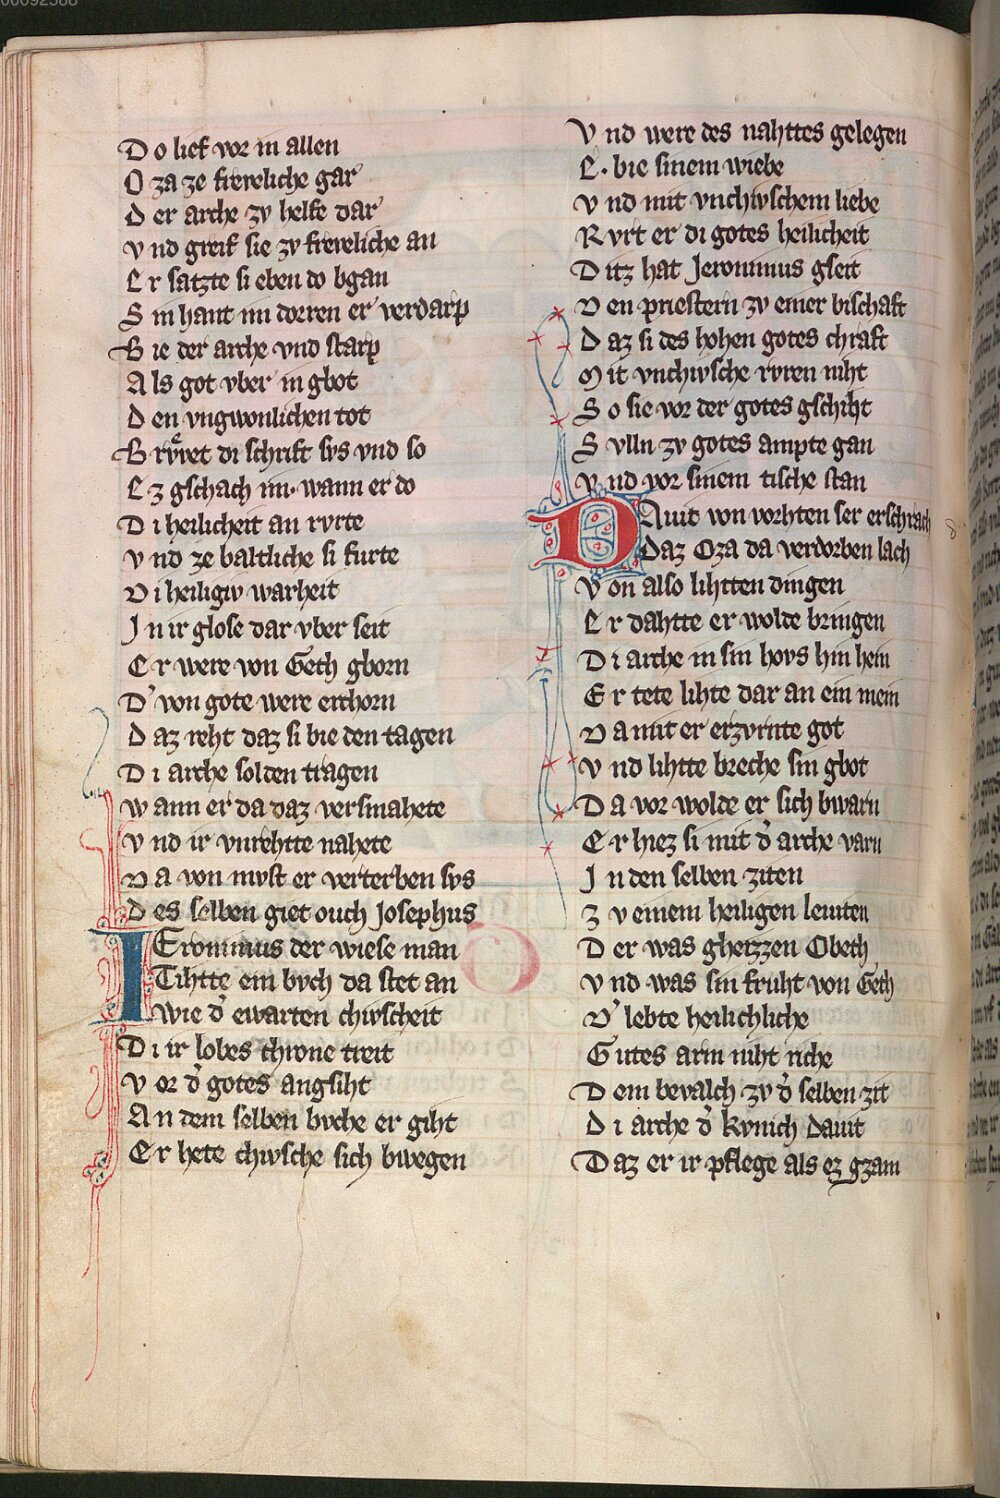 00092588
Do lief vor in allen
Oza ze freveliche gar
Der arche zv helfe dar
Vnd greif sie zv freveliche an
Er satzte si eben do bgan
Sin hant im dorren er verdarp
Bie der arche vnd starp
Als got vber in gbot
Den vngwonlichen tot
Brvͤvet di schrift svs vnd so
Ez gschach im· wann er do
Di heilicheit an rvrte
Vnd ze baltliche si furte
Di heiligiv warheit
In ir glose dar vber seit
Er were von Gech gborn
D' von gote were erchorn
Daz reht daz si bie den tagen
Di arche solden tragen
Wann er da daz versmahete
Vnd ir vnrehtte nahete
Da von mvst er verterben svs
Des selben giet ouch Josephus
Jeronimus der wiese man
Tihtte ein bvch da stet an
Wie d' ewarten chivscheit
Di ir lobes chrone treit
Vor d' gotes angsiht
An dem selben bvche er giht
Er hete chivsche sich bwegen
Vnd were des nahttes gelegen
E· bie sinem wiebe
Vnd mit vnchivschem liebe
Rvrt er di gotes heilicheit
Ditz hat Jeronimus gseit
Den priestern zv einer bischaft
Daz si des hohen gotes chraft
Mit vnchivsche rvren niht
So sie vor der gotes gschiht
Svlln zv gotes ampte gan
Vnd vor sinem tische stan
Dauit von vorhten ser erschrach
Daz Oza da verdorben lach
Von also lihtten dingen
Er dahtte er wolde bringen
Di arche in sin hovs hin hein
Er tete lihte dar an ein mein
Da mit er erzvrnte got
Vnd lihtte breche sin gbot
Da vor wolde er sich bwarn
Er hiez si mit d' arche varn
In den selben ziten
Zv einem heiligen leviten
Der was gheizzen Obech
Vnd was sin fruht von Gech
D' lebte heilichliche
Gutes arm niht riche
Dem bevalch zv d' selben zit
Di arche d' kvnich Dauit
Daz er ir pflege als ez gzam